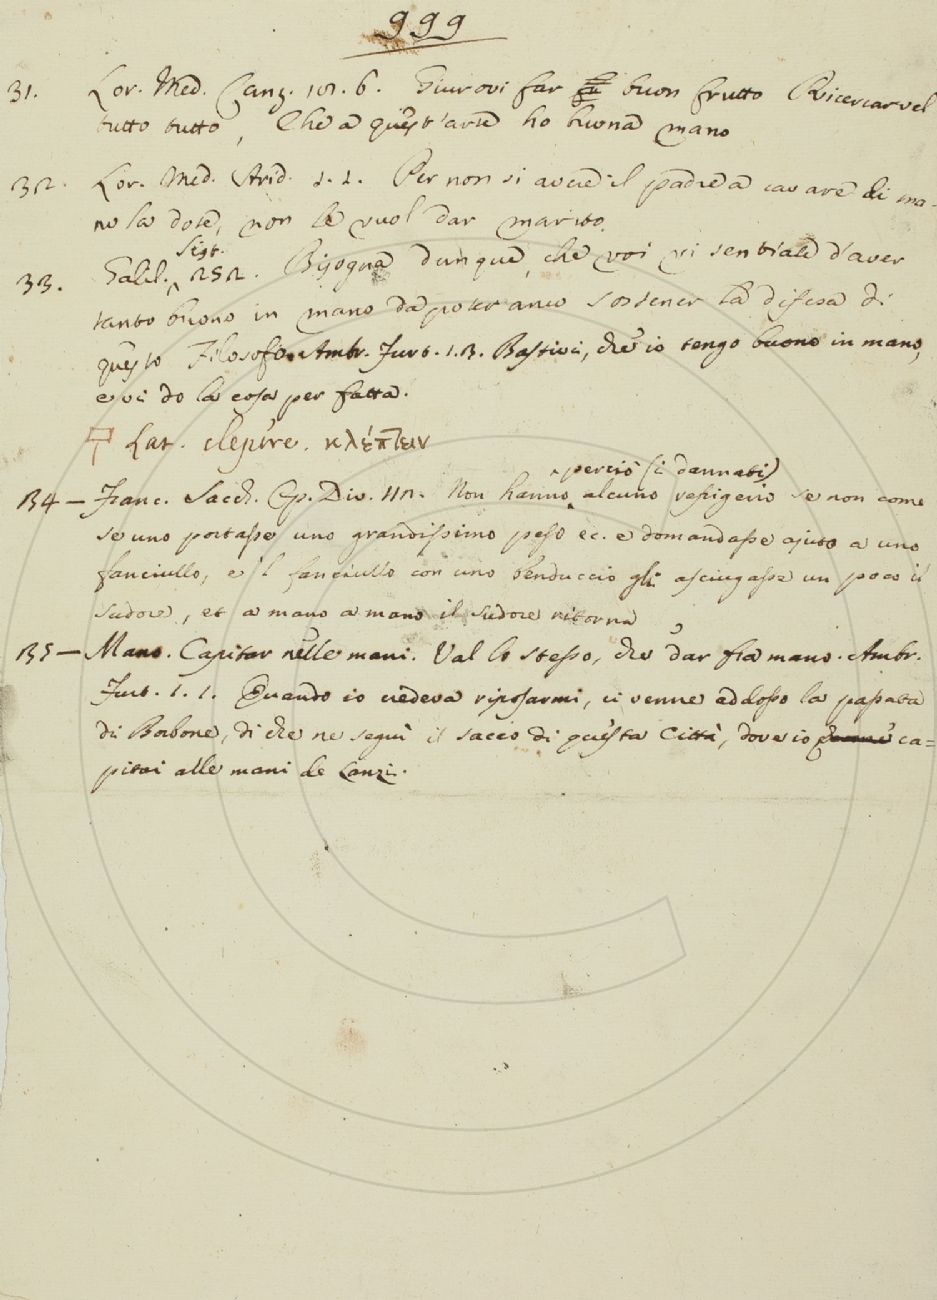 999
31. Lor. Med. Canz. 101. 6. Giurovi far buon frutto Ricercarvel
tutto tutto, Che a quest'arte ho buona mano
32. Lor. Med. Arid. 1. 1. Per non si avere il padre a cavare di ma-
no la dote, non le vuol dar marito.
33. Galil. Sist. 252. Bisogna dunque, che voi vi sentiate d'aver
tanto buono in mano da poter anco sostener la difesa di
questo Filosofo. Ambr. Furt. 1. 3. Bastivi, che io tengo buono in mano,
e vi do la cosa per fatta.
Lat. clepere. κλέπτειν
34 — Franc. Sacch. Op. Div. 112. Non hanno perciò (i dannati) alcuno refrigerio se non come
se uno portasse uno grandissimo peso ec. e domandasse ajuto a uno
fanciullo, e 'l fanciullo con uno benduccio gli asciugasse un poco il
sudore, et a mano a mano il sudore ritorna
35 — Mano. Capitar nelle mani. Val lo stesso, che dar fra mano. Ambr.
Furt. 1. 1. Quando io credeva riposarmi, ci venne addosso la passata
di Borbone, di che ne seguì il sacco di questa Città, dove io ca=
pitai alle mani de Lanzi.